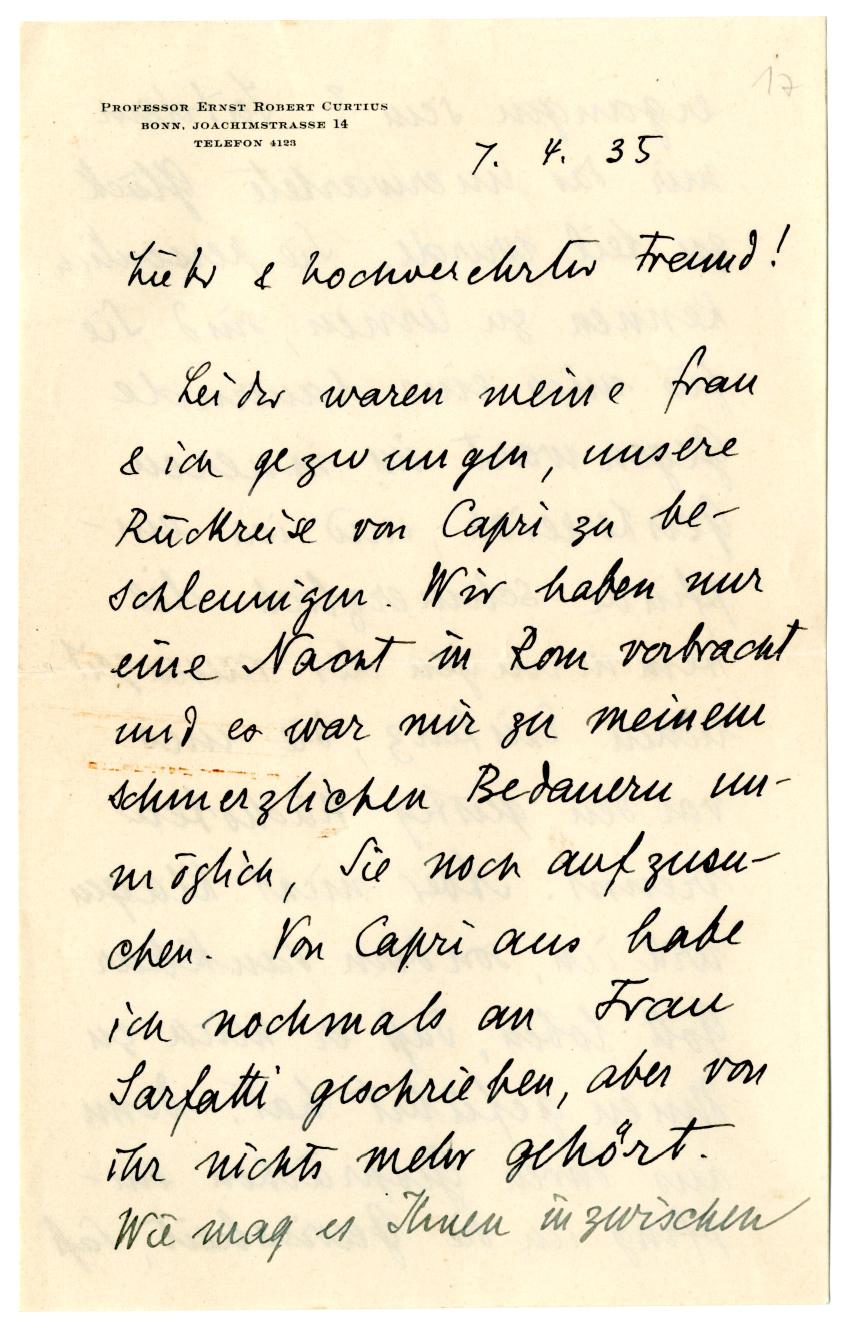 17
PROFESSOR ERNST ROBERT CURTIUS
BONN, JOACHIMSTRASSE 14
TELEFON 4123
7. 4. 35
Lieber & hochverehrter Freund!
Leider waren meine Frau
& ich gezwungen, unsere
Rückreise von Capri zu be-
schleunigen. Wir haben nur
eine Nacht in Rom verbracht
und es war mir zu meinem
schmerzlichen Bedauern un-
möglich, Sie noch aufzusu-
chen. Von Capri aus habe
ich nochmals an Frau
Sarfatti geschrieben, aber von
ihr nichts mehr gehört.
Wie mag es Ihnen inzwischen